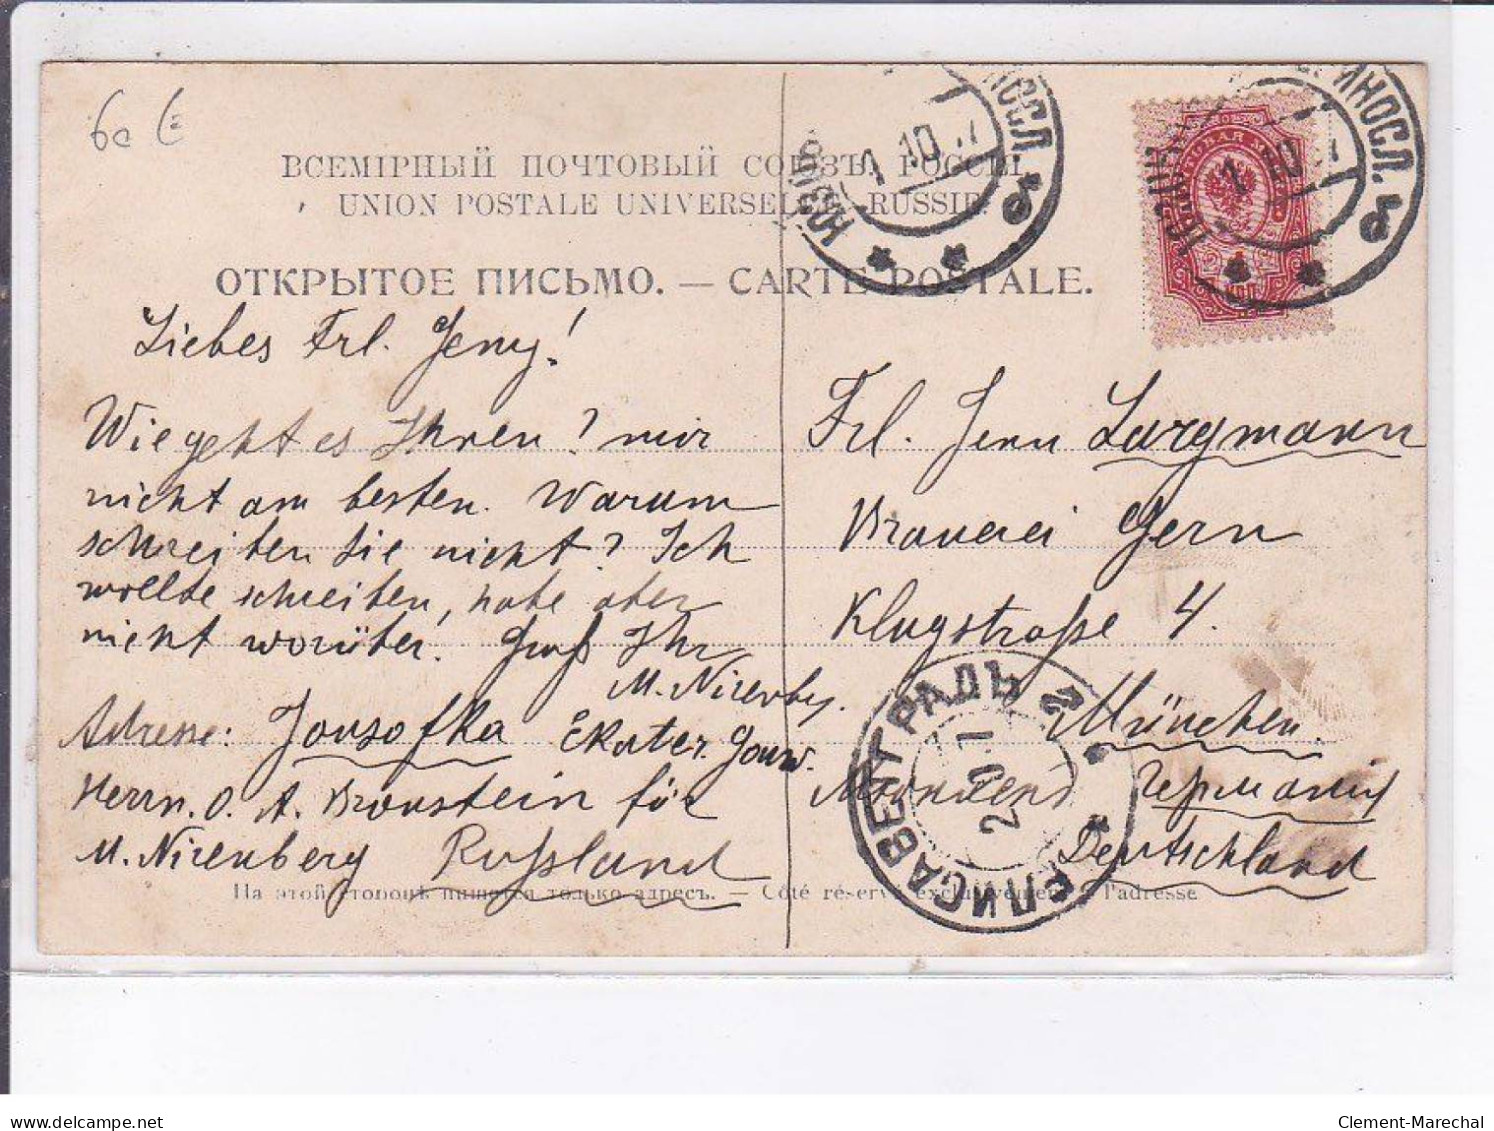 6a €
ВСЕМІРНЫЙ ПОЧТОВЫЙ СОЮЗЪ. РОССІЯ.
UNION POSTALE UNIVERSELLE. RUSSIE.
ОТКРЫТОЕ ПИСЬМО. — CARTE POSTALE.
ЮЗОВ
НОСЛ.
б
1 10 7
РИНОСЛ. б
1 10
Liebes Frl. Jeny!
Wie geht es Ihren? mir
nicht am besten. Warum
schreiben Sie nicht? Ich
wollte schreiben, habe aber
nicht worüber. Gruß Ihr
M. Nirenbg.
Adresse: Jousofka Ekater. Gouw.
Herrn. O. A. Bronstein für
M. Nirenberg Rußland
Frl. Jenn Largmann
Brauerei Gern
Klugstraße 4.
München.
Германія
Deutschland
ЕЛИСАВЕТГРАДЪ 2
2 10 7
На этой сторонѣ пишется только адресъ. — Côté réservé exclusivement à l'adresse
Clement-Marechal
delcampe.net